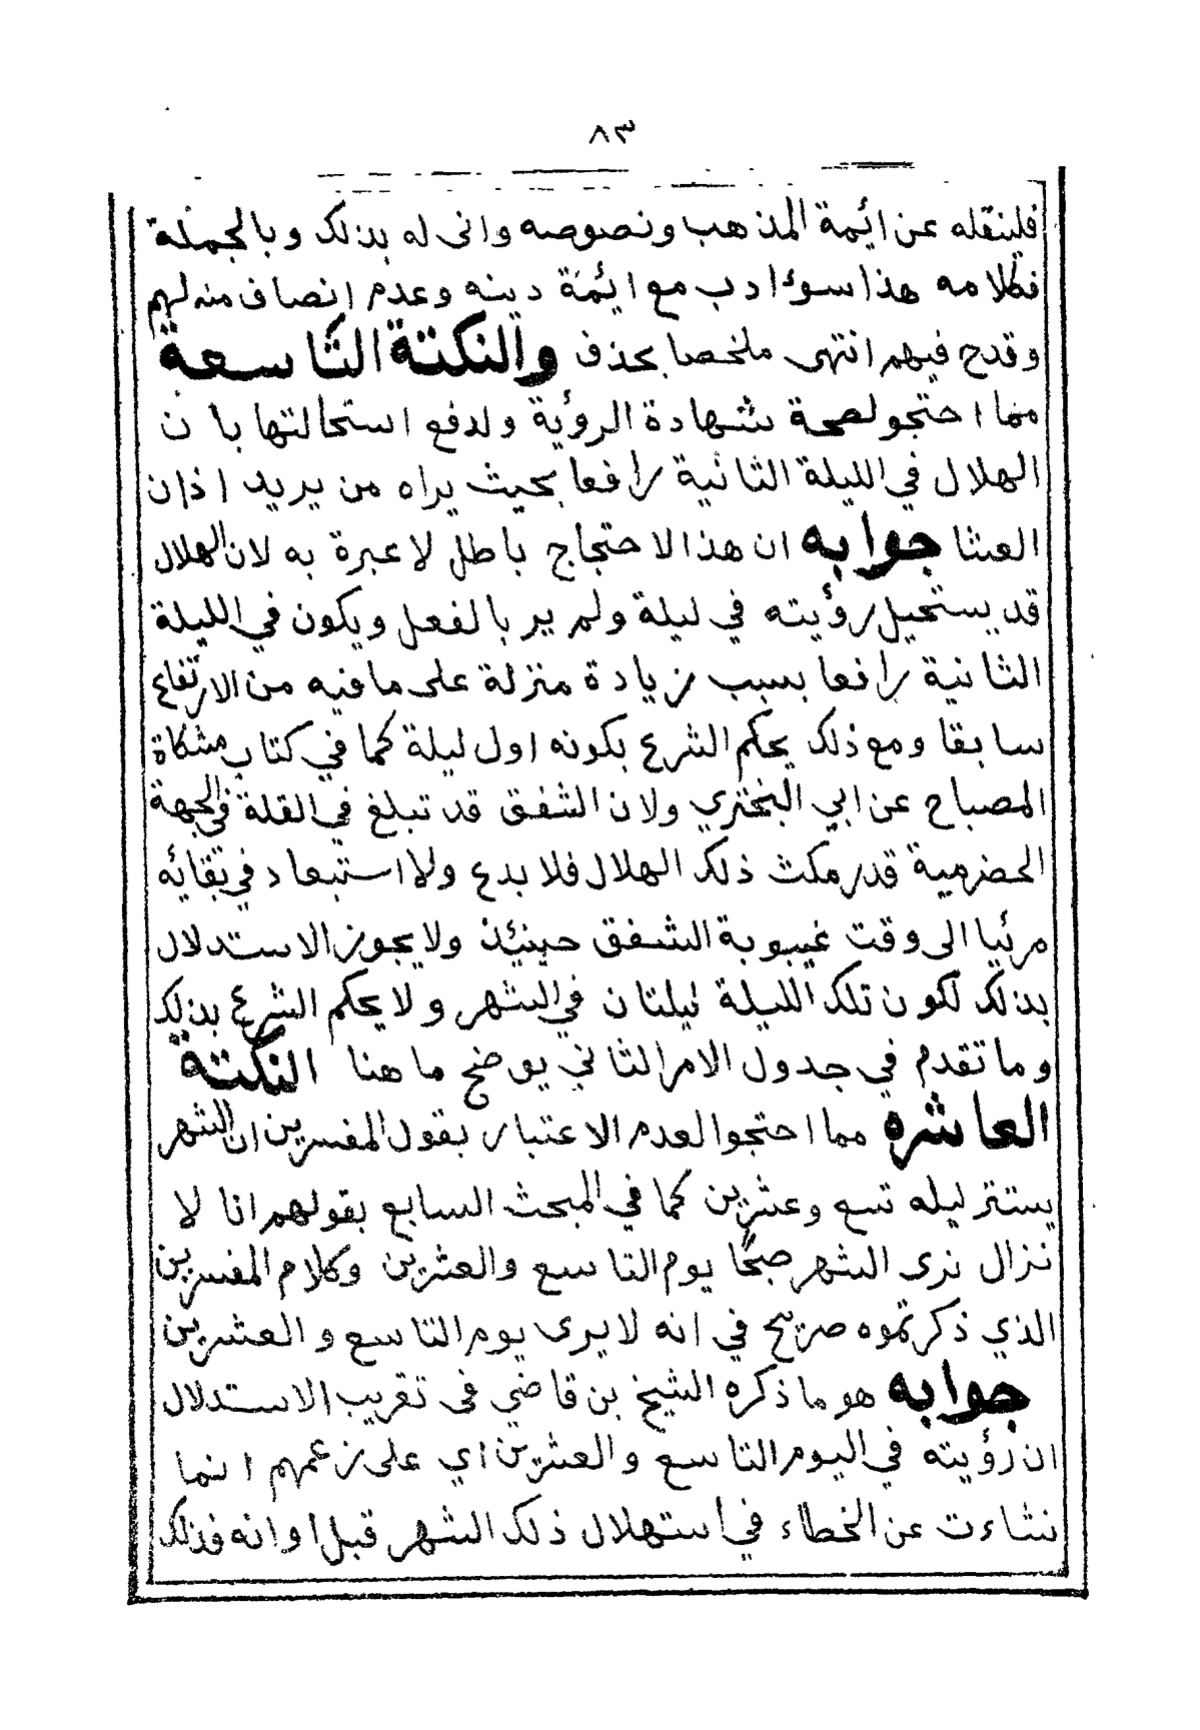 ٨٣
فلينقله عن ائيمة المذهب ونصوصه وانى له بذلك وبالجملة
فكلامه هذا سوء ادب مع ائيمة دينه وعدم انصاف منه لهم
وقدح فيهم انتهى ملخصا بحذف والنكتة التاسعة
مما احتجو لصحة شهادة الرؤية ولدفع استحالتها بان
الهلال في الليلة الثانية رافعا بحيث يراه من يريد اذان
العشا جوابه ان هذا الاحتجاج باطل لا عبرة به لان الهلال
قد يستحيل رؤيته في ليلة ولم ير بالفعل ويكون في الليلة
الثانية رافعا بسبب زيادة منزلة على ما فيه من الارتفاع
سابقا ومع ذلك يحكم الشرع بكونه اول ليلة كما في كتاب مشكاة
المصباح عن ابي البختري ولان الشفق قد تبلغ في القلة في الجهة
الحضرمية قدر مكث ذلك الهلال فلا بدع ولا استبعاد في بقائه
مرئيا الى وقت غيبوبة الشفق حينئذ ولا يجوز الاستدلال
بذلك لكون تلك الليلة ليلتان في الشهر ولا يحكم الشرع بذلك
وما تقدم في جدول الامر الثاني يوضح ما هنا النكتة
العاشره مما احتجوا لعدم الاعتبار بقول المفسرين ان الشهر
يستتر ليله تسع وعشرين كما في المبحث السابع بقولهم انا لا
نزال نرى الشهر صبحًا يوم التاسع والعشرين وكلام المفسرين
الذي ذكرتموه صريح في انه لا يرى يوم التاسع والعشرين
جوابه هو ما ذكره الشيخ بن قاضي في تقريب الاستدلال
ان رؤيته في اليوم التاسع والعشرين اي على زعمهم انما
نشاءت عن الخطاء في استهلال ذلك الشهر قبل اوانه فذلك